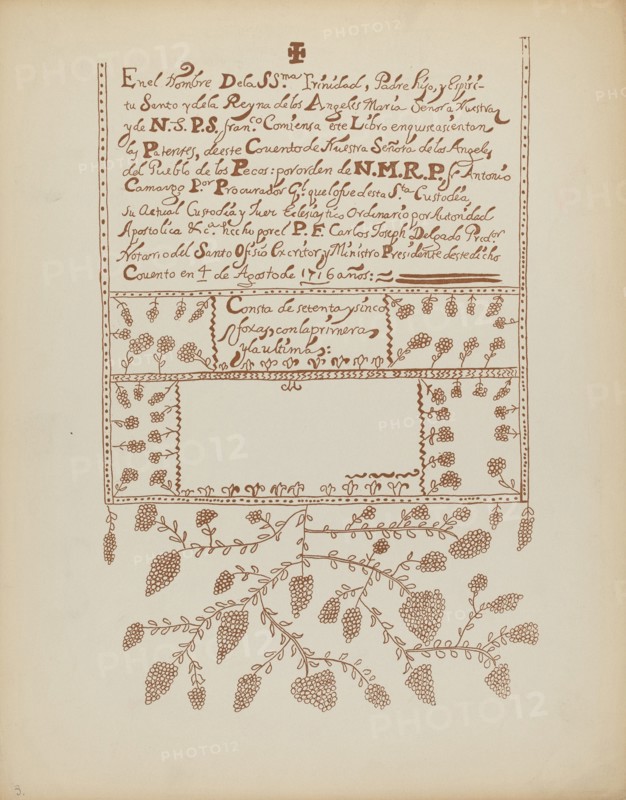 En el Nombre De la SS.ma Trinidad, Padre hijo, y Espiri-
tu Santo y de la Reyna de los Angeles Maria Señora Nuestra
y de N.S.P.S. fran.co Comiensa este Libro en que se asientan
las Patentes, de este Covento de Nuestra Señora de los Angeles
del Pueblo de los Pecos: por orden de N.M.R.P. fr. Antonio
Camargo P.or Procurador G.l que lo fue de esta S.ta Custodia
Su Actual Custodia y Juez Eclesiastico Ordinario por Autoridad
Apostolica &c.a hecho por el P. F. Carlos Joseph Delgado Pred.or
Notario del Santo Ofisio Escritor y Ministro Presidente de este dicho
Covento en 4 de Agosto de 1716 años:
Consta de setenta y sinco
foxas, con la primera
y la ultima:
3.
PHOTO12